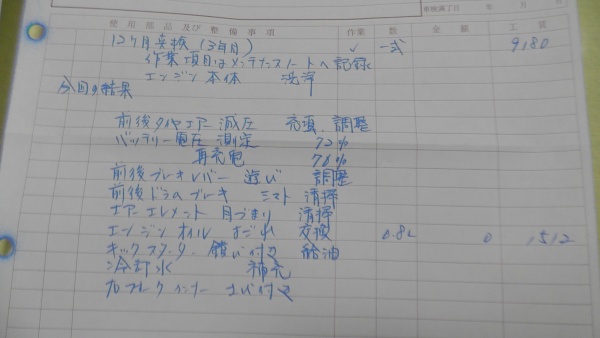 車検満了日 年 月
使用部品及び整備事項 作業 数 金額 工賃
12ヶ月点検 (3年目) ✓ 一式 9180
作業項目はメンテナンスノートへ記録
エンジン本体 洗浄
今回の結果
前後タイヤエアー減圧 充填、調整
バッテリー電圧測定 72%
再充電 76%
前後ブレーキレバー遊び 調整
前後ドラムブレーキ ダスト 清掃
エアーエレメント 目づまり 清掃
エンジンオイル よごれ 交換 0.8L 0 1512
キックスターター 錆び付き 給油
冷却水 補充
インナー さび付き